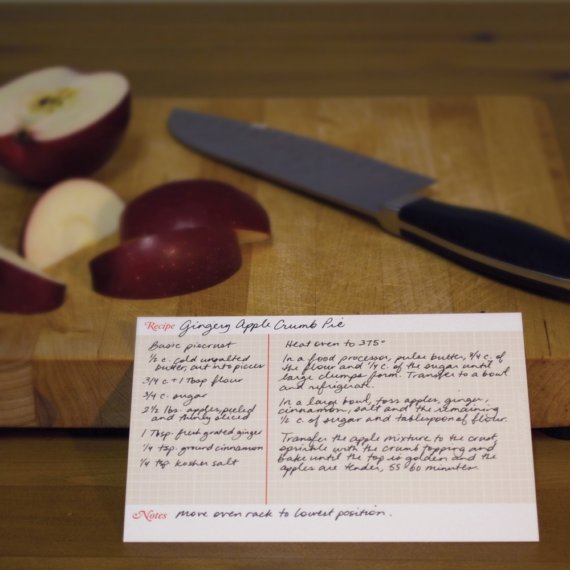 Recipe Gingery Apple Crumb Pie
Basic piecrust
1/2 c. cold unsalted
butter, cut into pieces
3/4 c + 1 Tbsp flour
3/4 c. sugar
2 1/2 lbs. apples, peeled
and thinly sliced
1 Tbsp. fresh grated ginger
1/4 tsp. ground cinnamon
1/4 tsp kosher salt
Heat oven to 375°
In a food processor, pulse butter, 3/4 c. of
the flour and 1/4 c. of the sugar until
large clumps form. Transfer to a bowl
and refrigerate.
In a large bowl, toss apples, ginger,
cinnamon, salt and the remaining
1/2 c. of sugar and tablespoon of flour.
Transfer the apple mixture to the crust
sprinkle with the crumb topping and
bake until the top is golden and the
apples are tender, 55-60 minutes.
Notes move oven rack to lowest position.